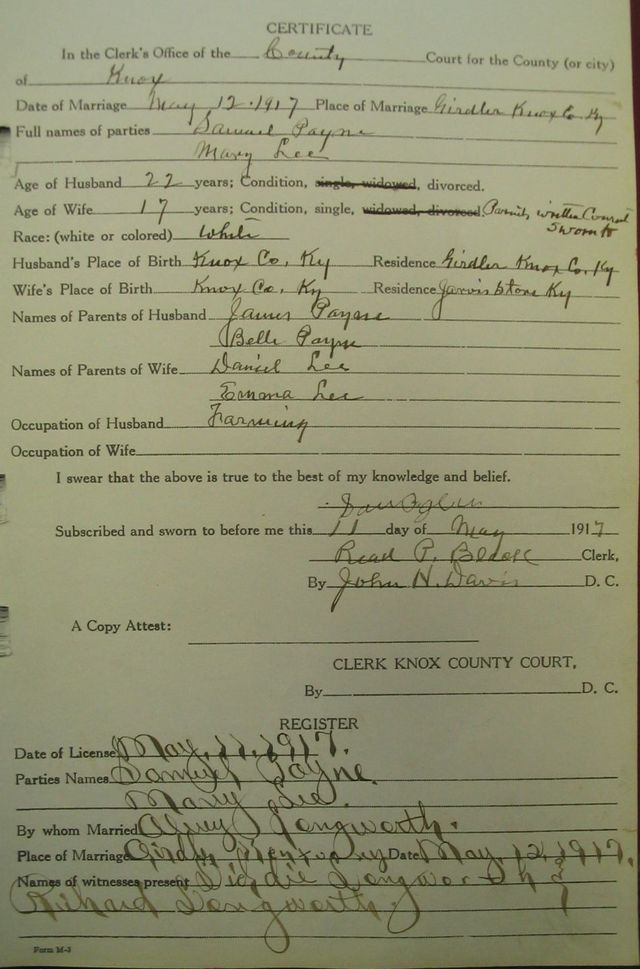 CERTIFICATE
In the Clerk's Office of the County Court for the County (or city)
of Knox
Date of Marriage May 12. 1917 Place of Marriage Girdler Knox Co. Ky
Full names of parties Samuel Payne
Mary Lee
Age of Husband 22 years; Condition, single, widowed, divorced.
Age of Wife 17 years; Condition, single, widowed, divorced Parents written Consent
Sworn to
Race: (white or colored) White
Husband's Place of Birth Knox Co, Ky Residence Girdler Knox Co. Ky
Wife's Place of Birth Knox Co. Ky Residence Jarvis Store Ky
Names of Parents of Husband James Payne
Belle Payne
Names of Parents of Wife Daniel Lee
Emma Lee
Occupation of Husband Farming
Occupation of Wife
I swear that the above is true to the best of my knowledge and belief.
Subscribed and sworn to before me this 11 day of May 1917
Read P. Black Clerk,
By John H. Davis D. C.
A Copy Attest:
CLERK KNOX COUNTY COURT,
By D. C.
REGISTER
Date of License May. 11. 1917.
Parties Names Samuel Payne.
Mary Lee.
By whom Married Longworth.
Place of Marriage Girdler Kentucky Date May. 12. 1917.
Names of witnesses present Longworth &
Richard Longworth.
Form M-3